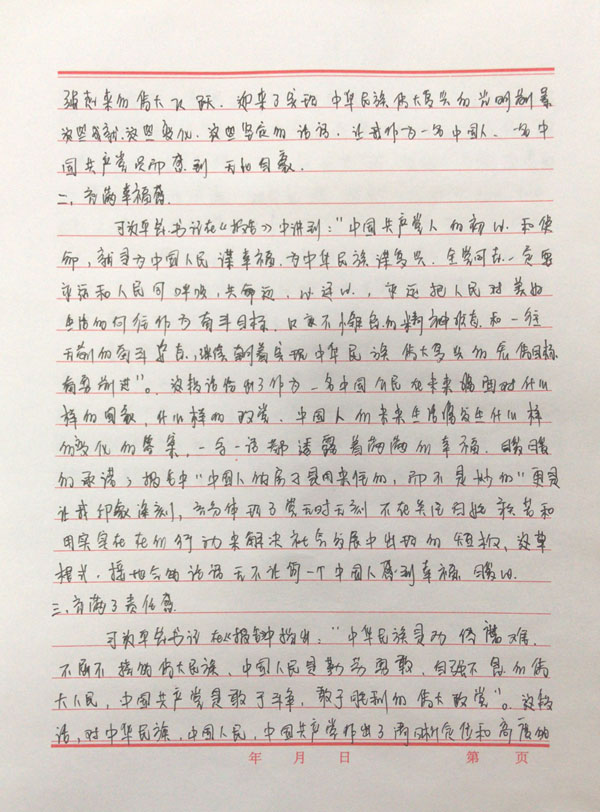 强起来的伟大飞跃，迎来了实现中华民族伟大复兴的光明前景
这些成就、这些变化、这些坚定的话语，让我作为一名中国人、一名中
国共产党员而感到无比自豪。
二、充满幸福感。
习总书记在《报告》中讲到：“中国共产党人的初心和使
命，就是为中国人民谋幸福，为中华民族谋复兴。全党同志一定要
永远和人民同呼吸、共命运、心连心，永远把人民对美好
生活的向往作为奋斗目标，以永不懈怠的精神状态和一往
无前的奋斗姿态，继续朝着实现中华民族伟大复兴的宏伟目标
奋勇前进”。这段话给出了作为一名中国人民在未来将面对什么
样的国家，什么样的政党、中国人的未来生活将发生什么样
的变化的答案，一言一语都透露着满满的幸福、暖暖
的承诺；报告中“中国人的房子是用来住的，而不是炒的”更是
让我印象深刻，充分体现了党无时无刻不在关注百姓新若和
用实实在在的行动来解决社会发展中出现的短板，这草
根式、接地气的话语无不让每一个中国人感到幸福、暖心。
三、充满了责任感
习总书记在《报告》中指出：“中华民族是历经磨难、
不屈不挠的伟大民族，中国人民是勤劳勇敢、自强不息的伟
大人民，中国共产党是敢于斗争、敢于胜利的伟大政党”。这段
话，对中华民族、中国人民、中国共产党作出了清晰定位和高度的
年 月 日 第 页